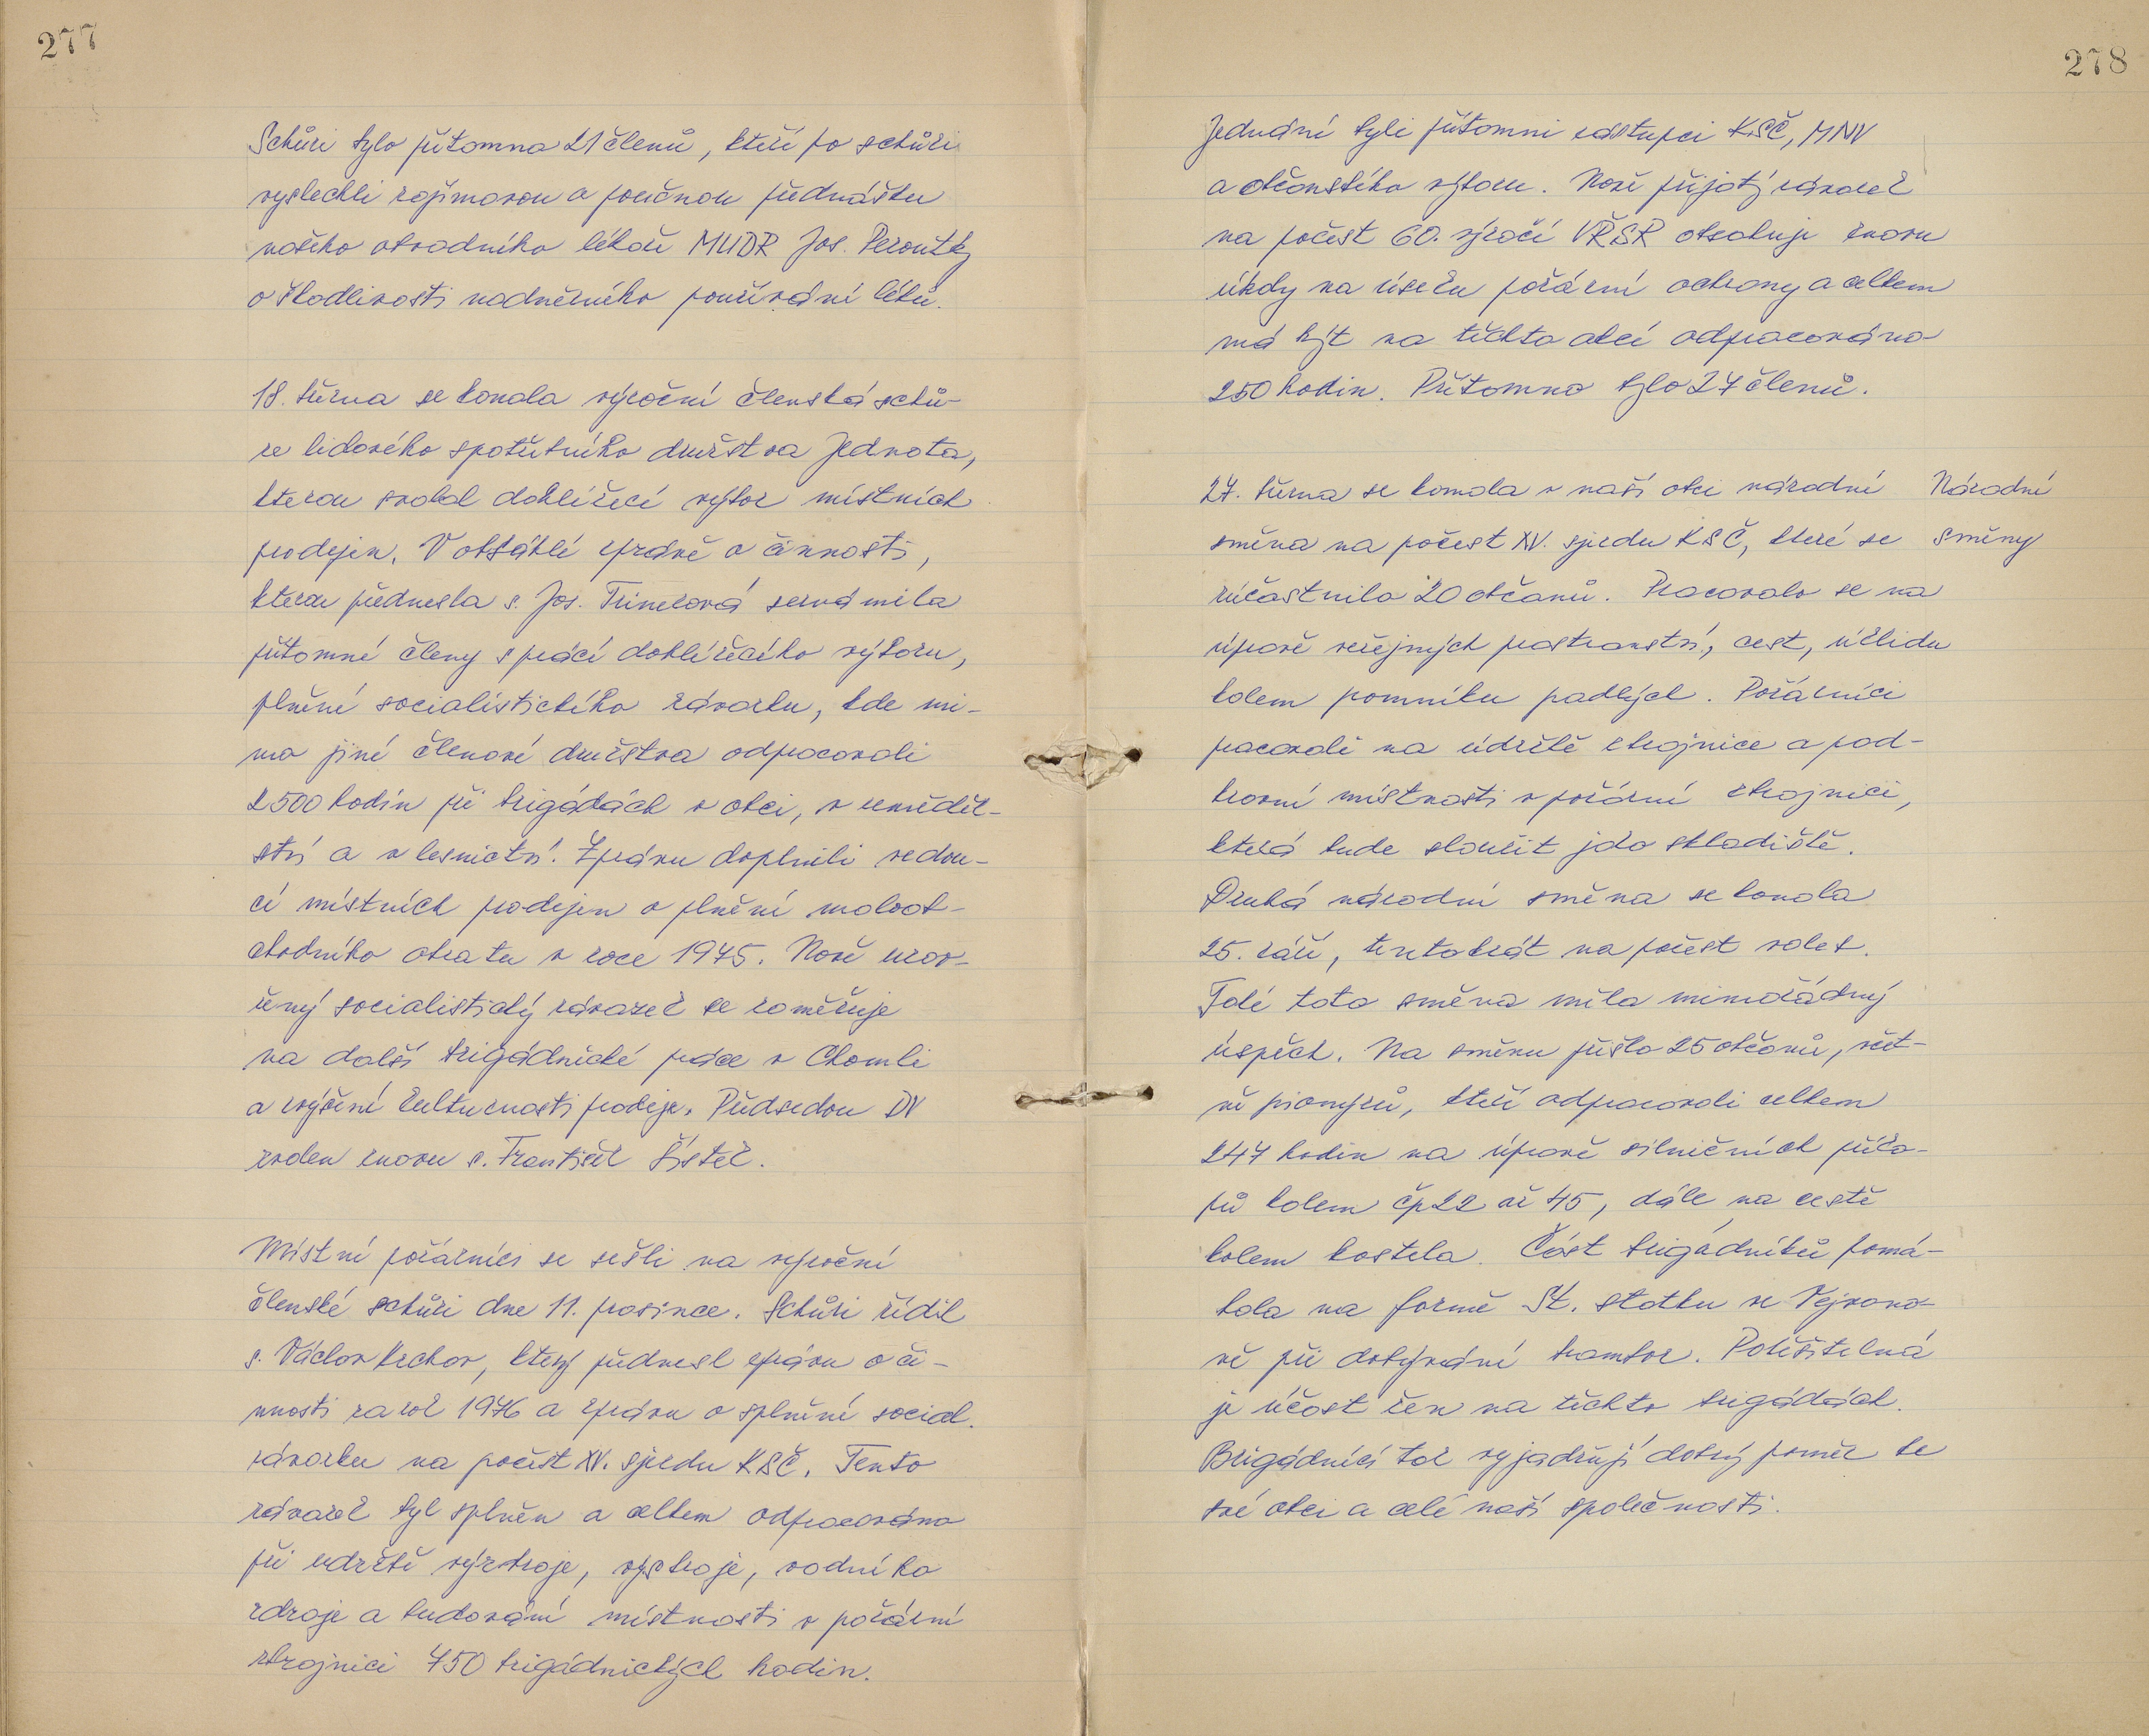 277
Schůzi bylo přítomno 21 členů, kteří po schůzi
vyslechli zajímavou a poučnou přednášku
našeho obvodního lékaře MUDR Jos. Peroutky
o škodlivosti nadměrného používání léků.
18. března se konala výroční členská schů-
ze lidového spotřebního družstva Jednota,
kterou svolal dohlížecí výbor místních
prodejen. V obsáhlé zprávě o činnosti,
kterou přednesla s. Jos. Trinerová seznámila
přítomné členy s prací dohlížecího výboru,
plnění socialistického závazku, kde mi-
mo jiné členové družstva odpracovali
2500 hodin při brigádách v obci, v zeměděl-
ství a v lesnictví. Zprávu doplnili vedou-
cí místních prodejen o plnění maloob-
chodního obratu v roce 1975. Nově uzav-
řený socialistický závazek se zaměřuje
na další brigádnické práce v Chomli
a zvýšení kulturnosti prodeje. Předsedou DV
zvolen znovu s. František Šístek.
Místní požárníci se sešli na výroční
členské schůzi dne 11. prosince. Schůzi řídil
s. Václav Krchov, který přednesl zprávu o či-
nnosti za rok 1976 a zprávu o splnění social.
závazku na počest XV. sjezdu KSČ. Tento
závazek byl splněn a celkem odpracováno
při udržbě výzbroje, výstroje, vodního
zdroje a budování místnosti v požární
zbrojnici 450 brigádnických hodin.
278
Jednání byli přítomni zástupci KSČ, MNV
a občanského výboru. Nově přijatý závazek
na počest 60. výročí VŘSR obsahuje znovu
úkoly na úseku požární ochrany a celkem
má být na těchto akcí odpracováno
250 hodin. Přítomno bylo 27 členů.
27. března se konala v naší obci národní
Národní
směna na počest XV. sjezdu KSČ, které se
směny
zúčastnilo 20 občanů. Pracovalo se na
úpravě veřejných prostranství, cest, úklidu
kolem pomníku padlých. Požárníci
pracovali na údržbě zbrojnice a pod-
krovní místnosti v požární zbrojnici,
která bude sloužit jako skladiště.
Druhá národní směna se konala
25. září, tentokrát na počest voleb.
Též tato směna měla mimořádný
úspěch. Na směnu přišlo 25 občanů, včet-
ně pionýrů, kteří odpracovali celkem
247 hodin na úpravě silničních příko-
pů kolem čp 22 až 45, dále na cestě
kolem kostela. Část brigádníků pomá-
hala na farmě St. statku ve Vejvano-
vě při dobývání brambor. Potěšitelná
je účast žen na těchto brigádách.
Brigádníci tak vyjadřují dobrý poměr ke
své obci a celé naší společnosti.